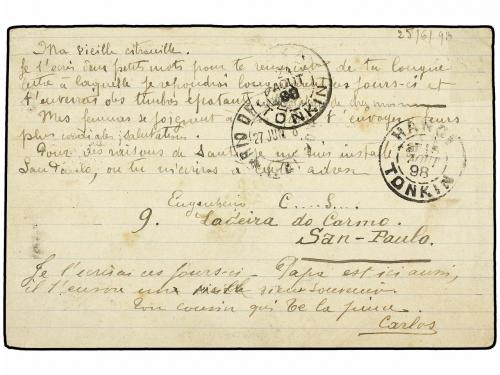 25/6/98
Ma vieille citrouille.
Je t'écris deux petits mots pour te remercier de ta longue
lettre à laquelle je répondrai ces jours-ci et
t'enverrai des timbres épatants
Mes femmes se joignent à t'envoyer leurs
plus cordiales salutations.
Pour des raisons de santé je me suis installé
San Paulo, ou tu m'écriras à cette adresse
Engenheiro C... S...
9. Ladeira do Carmo.
San-Paulo.
Je t'écrirai ces jours-ci. Papa est ici aussi,
il t'envoie un vieux souvenir
Ton cousin qui te la pince
Carlos
AOUT
98
TONKIN
27 JUN
HANOI
AOUT
98
TONKIN